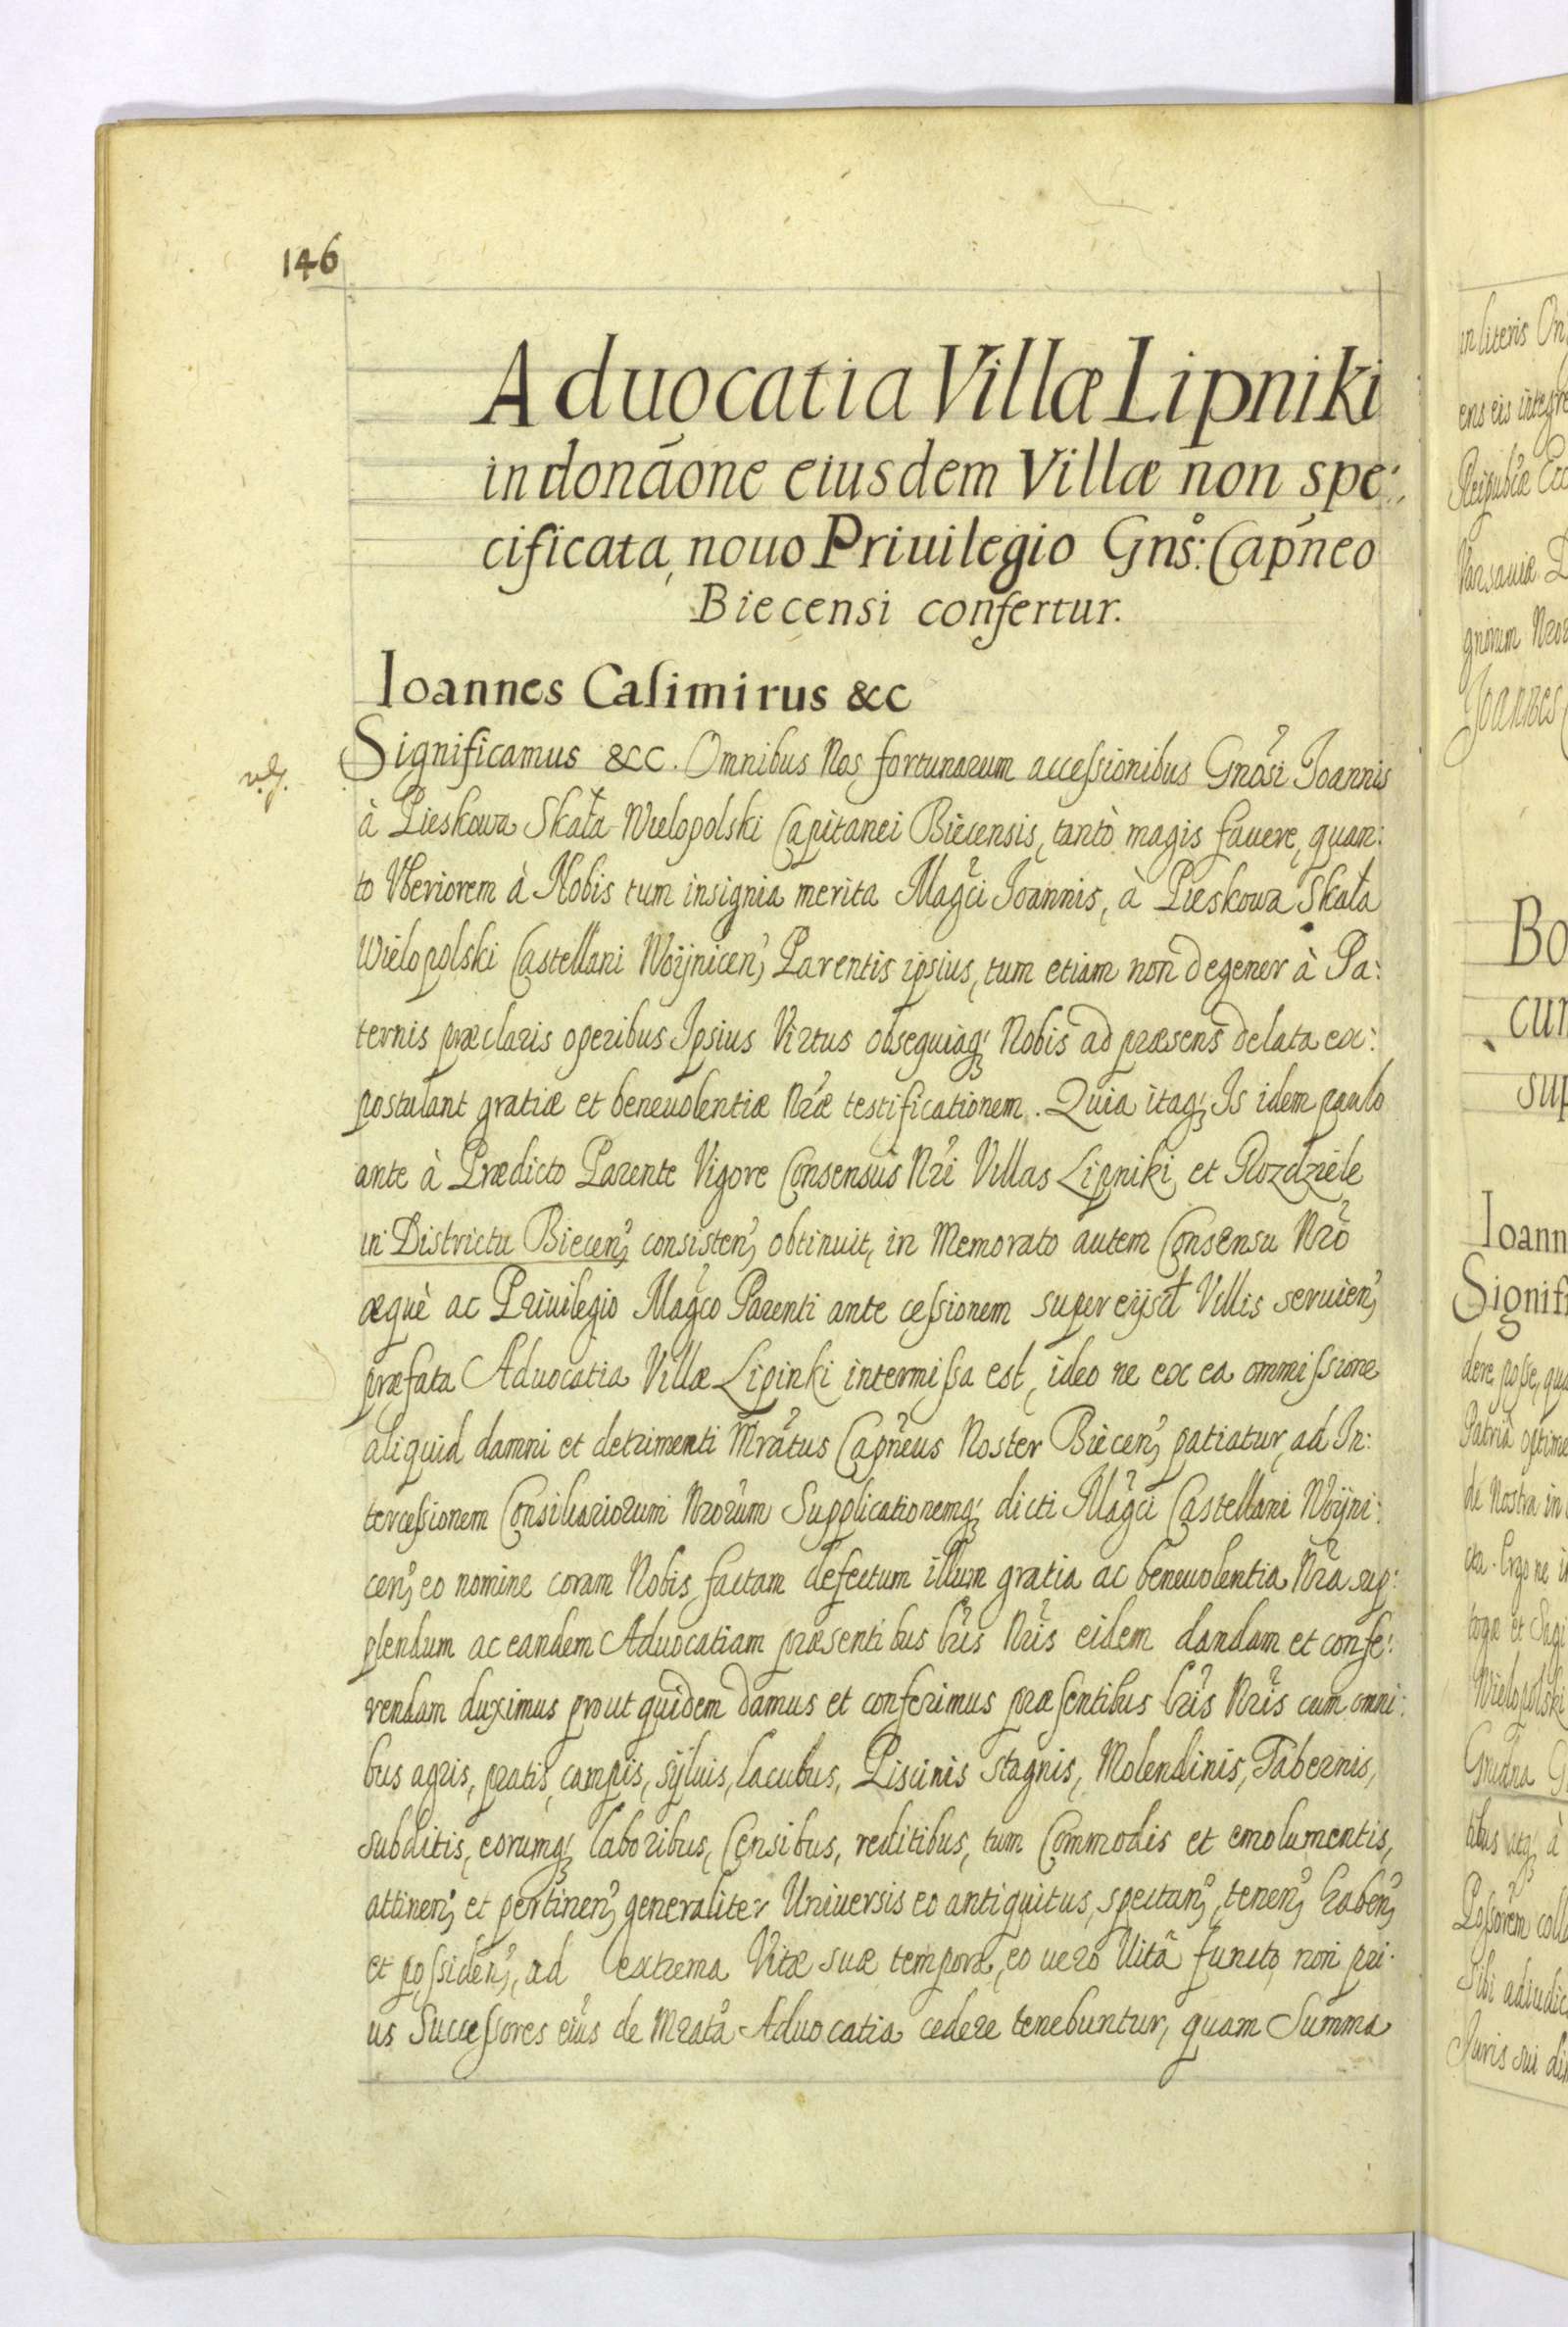 146
Aduocatia Villæ Lipniki
in donãone eiusdem Villæ non spe:
cificata, nouo Priuilegio Gnso: Capneo
Biecensi confertur.
Ioannes Casimirus &c
Significamus &c. Omnibus Nos fortunarum accessionibus Gnosi Joannis
à Pieskowa Skała Wielopolski Capitanei Biecensis, tantò magis fauere, quan:
to Vberiorem à Nobis tum insignia merita Magci Joannis, à Pieskowa Skała
Wielopolski Castellani Woÿnicen, Parentis ipsius, tum etiam non degener à Pa:
ternis præclaris operibus Ipsius Virtus obsequiaq; Nobis ad præsens delata ex:
postulant gratiæ et beneuolentiæ Nræ testificationem. Quia itaq; Is idem paulo
ante à Prædicto Parente Vigore Consensus Nri Villas Lipniki et Rozdziele
in Districtu Biecen, consisten, obtinuit, in Memorato autem Consensu Nro
æquè ac Priuilegio Magco Parenti ante cessionem super eijsd Villis seruien,
præfata Aduocatia Villæ Lipinki intermissa est, ideo ne ex ea ommissione
aliquid damni et detrimenti Mratus Capneus Noster Biecen, patiatur, ad In:
tercessionem Consiliariorum Nrorum Supplicationemq; dicti Magci Castellani Woÿni:
cen, eo nomine coram Nobis factam defectum illum gratia ac beneuolentia Nra sup:
plendum ac eandem Aduocatiam præsentibus lris Nris eidem dandam et confe:
rendam duximus prout quidem damus et conferimus præsentibus lris Nris cum omni:
bus agris, pratis, campis, sÿluis, lacubus, Piscinis stagnis, Molendinis, Tabernis,
subditis, eorumq; laboribus, Censibus, reditibus, tum Commodis et emolumentis,
attinen, et pertinen, generaliter Uniuersis eo antiquitus, spectan, tenen, haben,
et possiden, ad extrema Vitæ suæ tempora, eo uero Uitâ functo, non pri:
us Successores eius de Mrata Aduocatia cedere tenebuntur, quam Summa